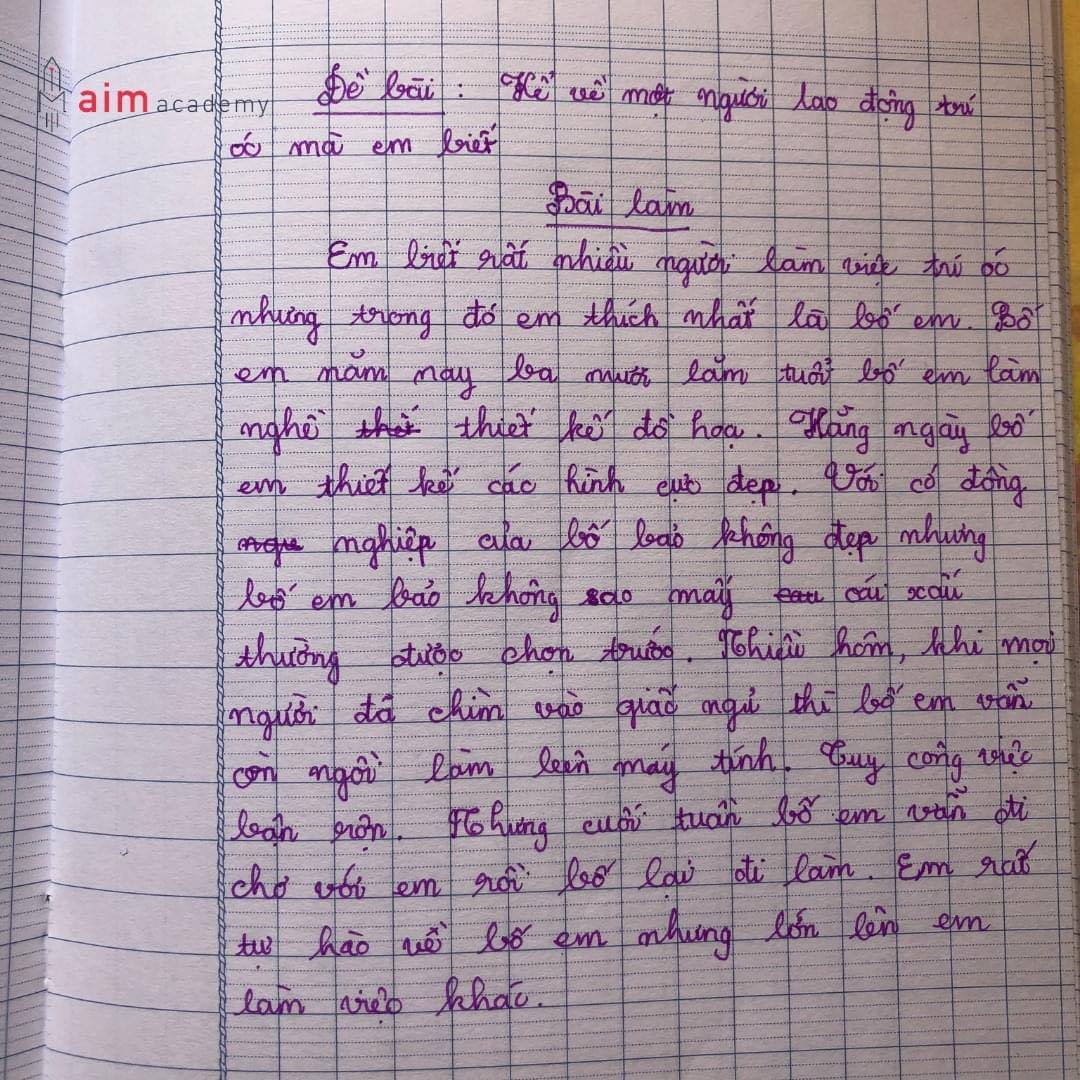 aim academy
Đề bài : Kể về một người lao động trí
óc mà em biết
Bài làm
Em biết rất nhiều người làm việc trí óc
nhưng trong đó em thích nhất là bố em. Bố
em năm nay ba mươi lăm tuổi bố em làm
nghề thiết kế đồ hoạ. Hằng ngày bố
em thiết kế các hình cực đẹp. Với cô đồng
nghiệp của bố bảo không đẹp nhưng
bố em bảo không sao mấy cái xấu
thường được chọn trước. Nhiều hôm, khi mọi
người đã chìm vào giấc ngủ thì bố em vẫn
còn ngồi làm bên máy tính. Tuy công việc
bận rộn. Nhưng cuối tuần bố em vẫn đi
chơ với em rồi bố lại đi làm. Em rất
tự hào về bố em nhưng lớn lên em
làm việc khác.